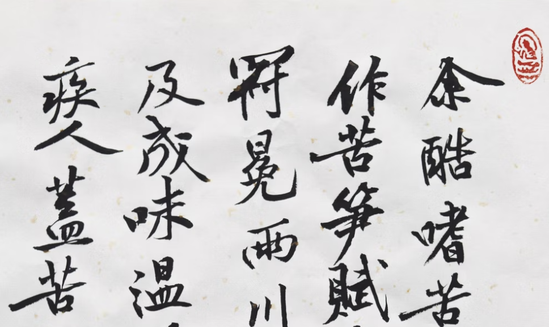 余酷嗜苦
作苦笋賦
冠冕兩川
及成味温
疾人蓋苦